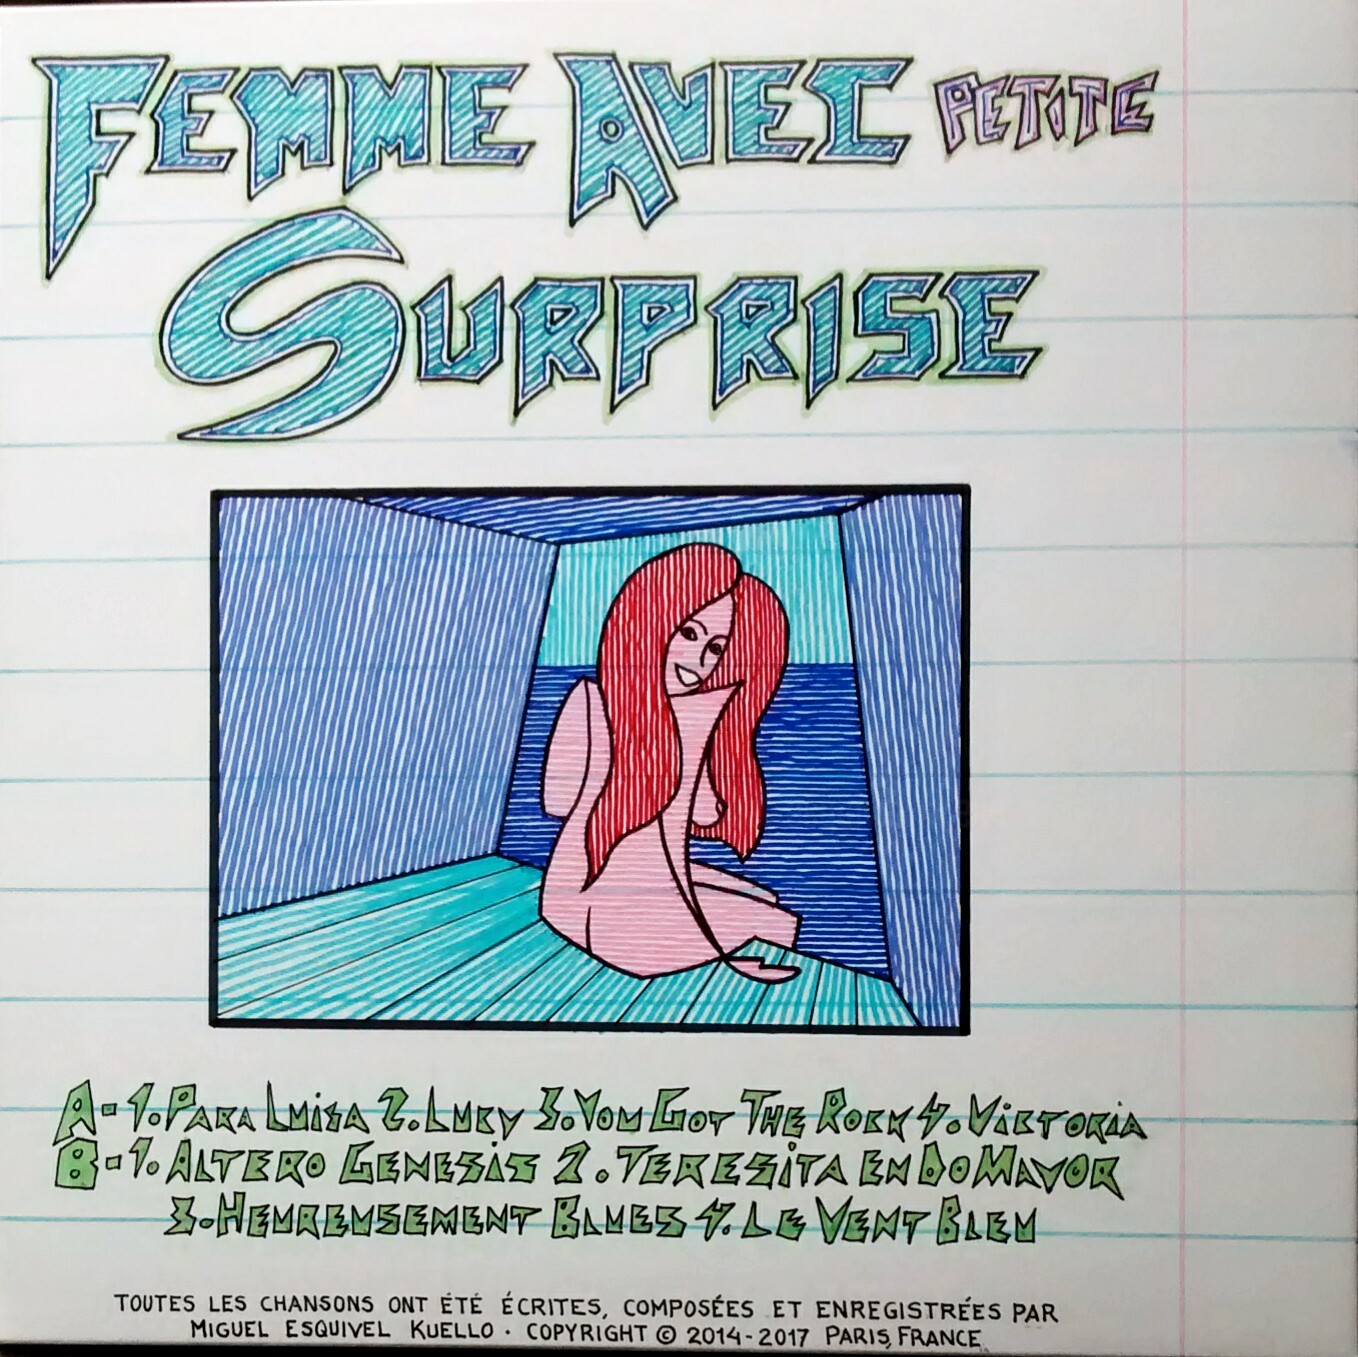 FEMME AVEC PETITE
SURPRISE
A-1.PARA LUISA 2.LUCY 3.YOU GOT THE ROCK 4.VICTORIA
B-1.ALTERO GENESIS 2.TERESITA EN DO MAYOR
3.HEUREUSEMENT BLUES 4.LE VENT BLEU
TOUTES LES CHANSONS ONT ÉTÉ ÉCRITES, COMPOSÉES ET ENREGISTRÉES PAR
MIGUEL ESQUIVEL KUELLO · COPYRIGHT © 2014-2017 PARIS, FRANCE